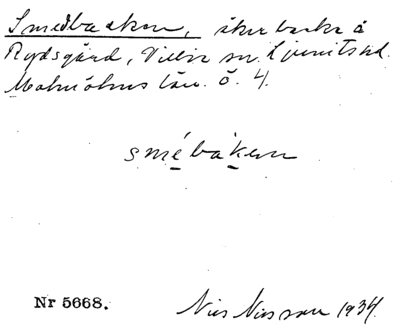 Smedbacken, åkerbacke å
Rydsgård, Villie sn. Ljunits hd.
Malmöhus län. ö. 4.
smébákenn
Nr 5668.
Nils Nilsson 1934.